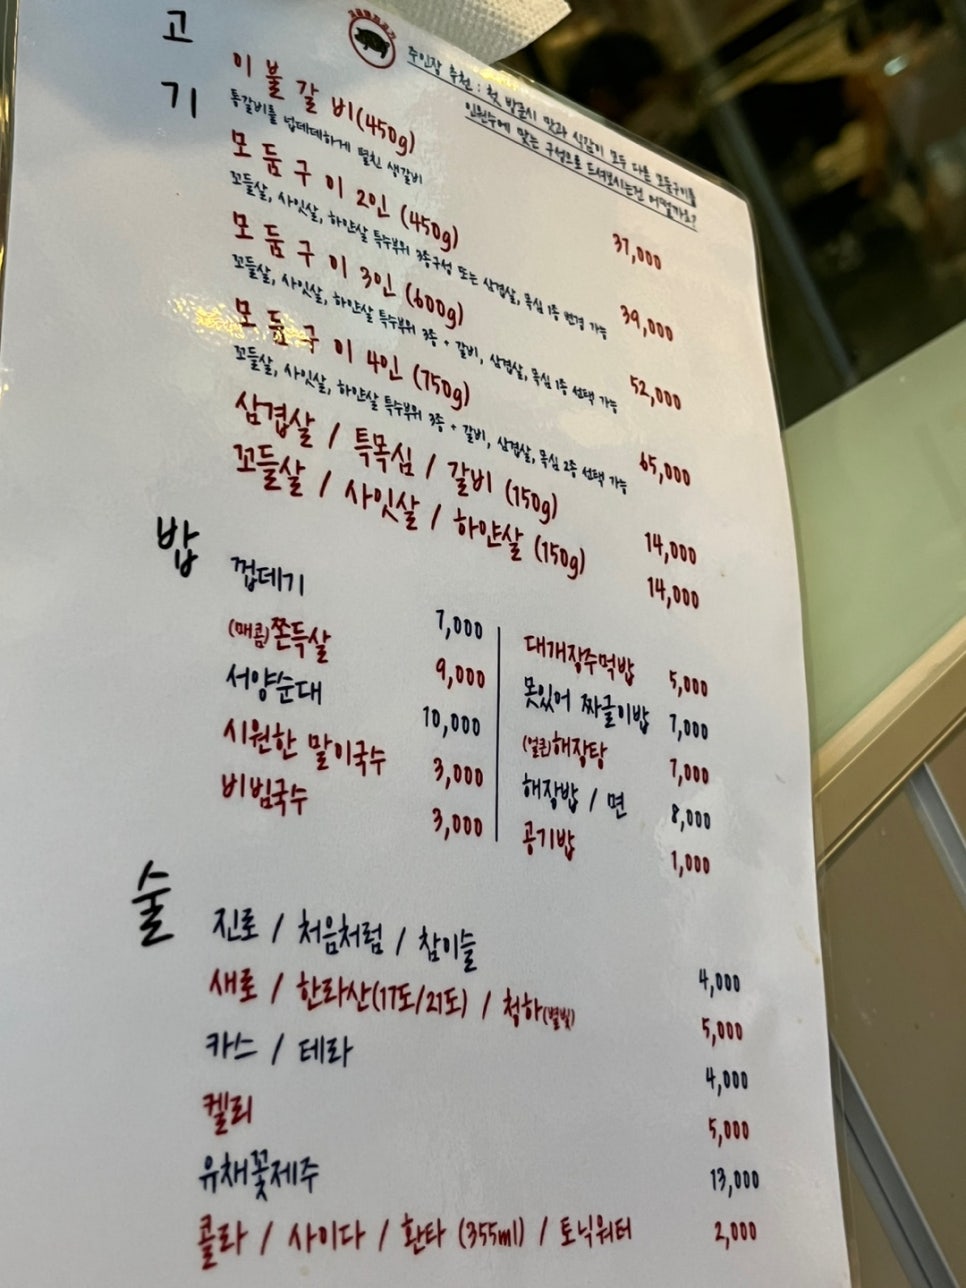 주인장 추천 : 첫 방문시 맛과 식감이 모두 다른 모둠구이를
인원수에 맞는 구성으로 드셔보시는건 어떨까요?
고기
이불갈비(450g) 37,000
통갈비를 넙데데하게 펼친 생갈비
모둠구이 2인 (450g) 39,000
꼬들살, 사잇살, 하얀살 특수부위 3종구성 또는 삼겹살, 목심 1종 변경 가능
모둠구이 3인 (600g) 52,000
꼬들살, 사잇살, 하얀살 특수부위 3종 + 갈비, 삼겹살, 목심 1종 선택 가능
모둠구이 4인 (750g) 65,000
꼬들살, 사잇살, 하얀살 특수부위 3종 + 갈비, 삼겹살, 목심 2종 선택 가능
삼겹살 / 특목심 / 갈비 (150g) 14,000
꼬들살 / 사잇살 / 하얀살 (150g) 14,000
밥
껍데기 7,000
(매콤)쫀득살 9,000
서양순대 10,000
시원한 말이국수 3,000
비빔국수 3,000
대개장주먹밥 5,000
못있어 짜글이밥 7,000
(얼큰)해장탕 7,000
해장밥 / 면 8,000
공기밥 1,000
술
진로 / 처음처럼 / 참이슬 4,000
새로 / 한라산(17도/21도) / 청하(별빛) 5,000
카스 / 테라 4,000
켈리 5,000
유채꽃제주 13,000
콜라 / 사이다 / 환타 (355ml) / 토닉워터 2,000